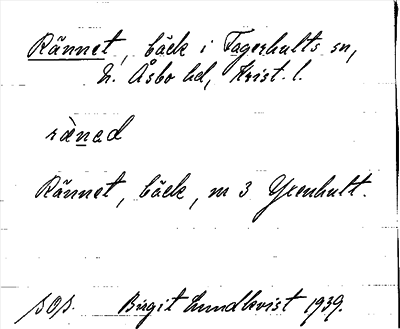 Rännet, bäck i Fagerhults sn,
N. Åsbo hd, Krist. l.
rä̀nəd
Rännet, bäck, m 3 Yxenhult.
SOS. Birgit Lundkvist 1939.